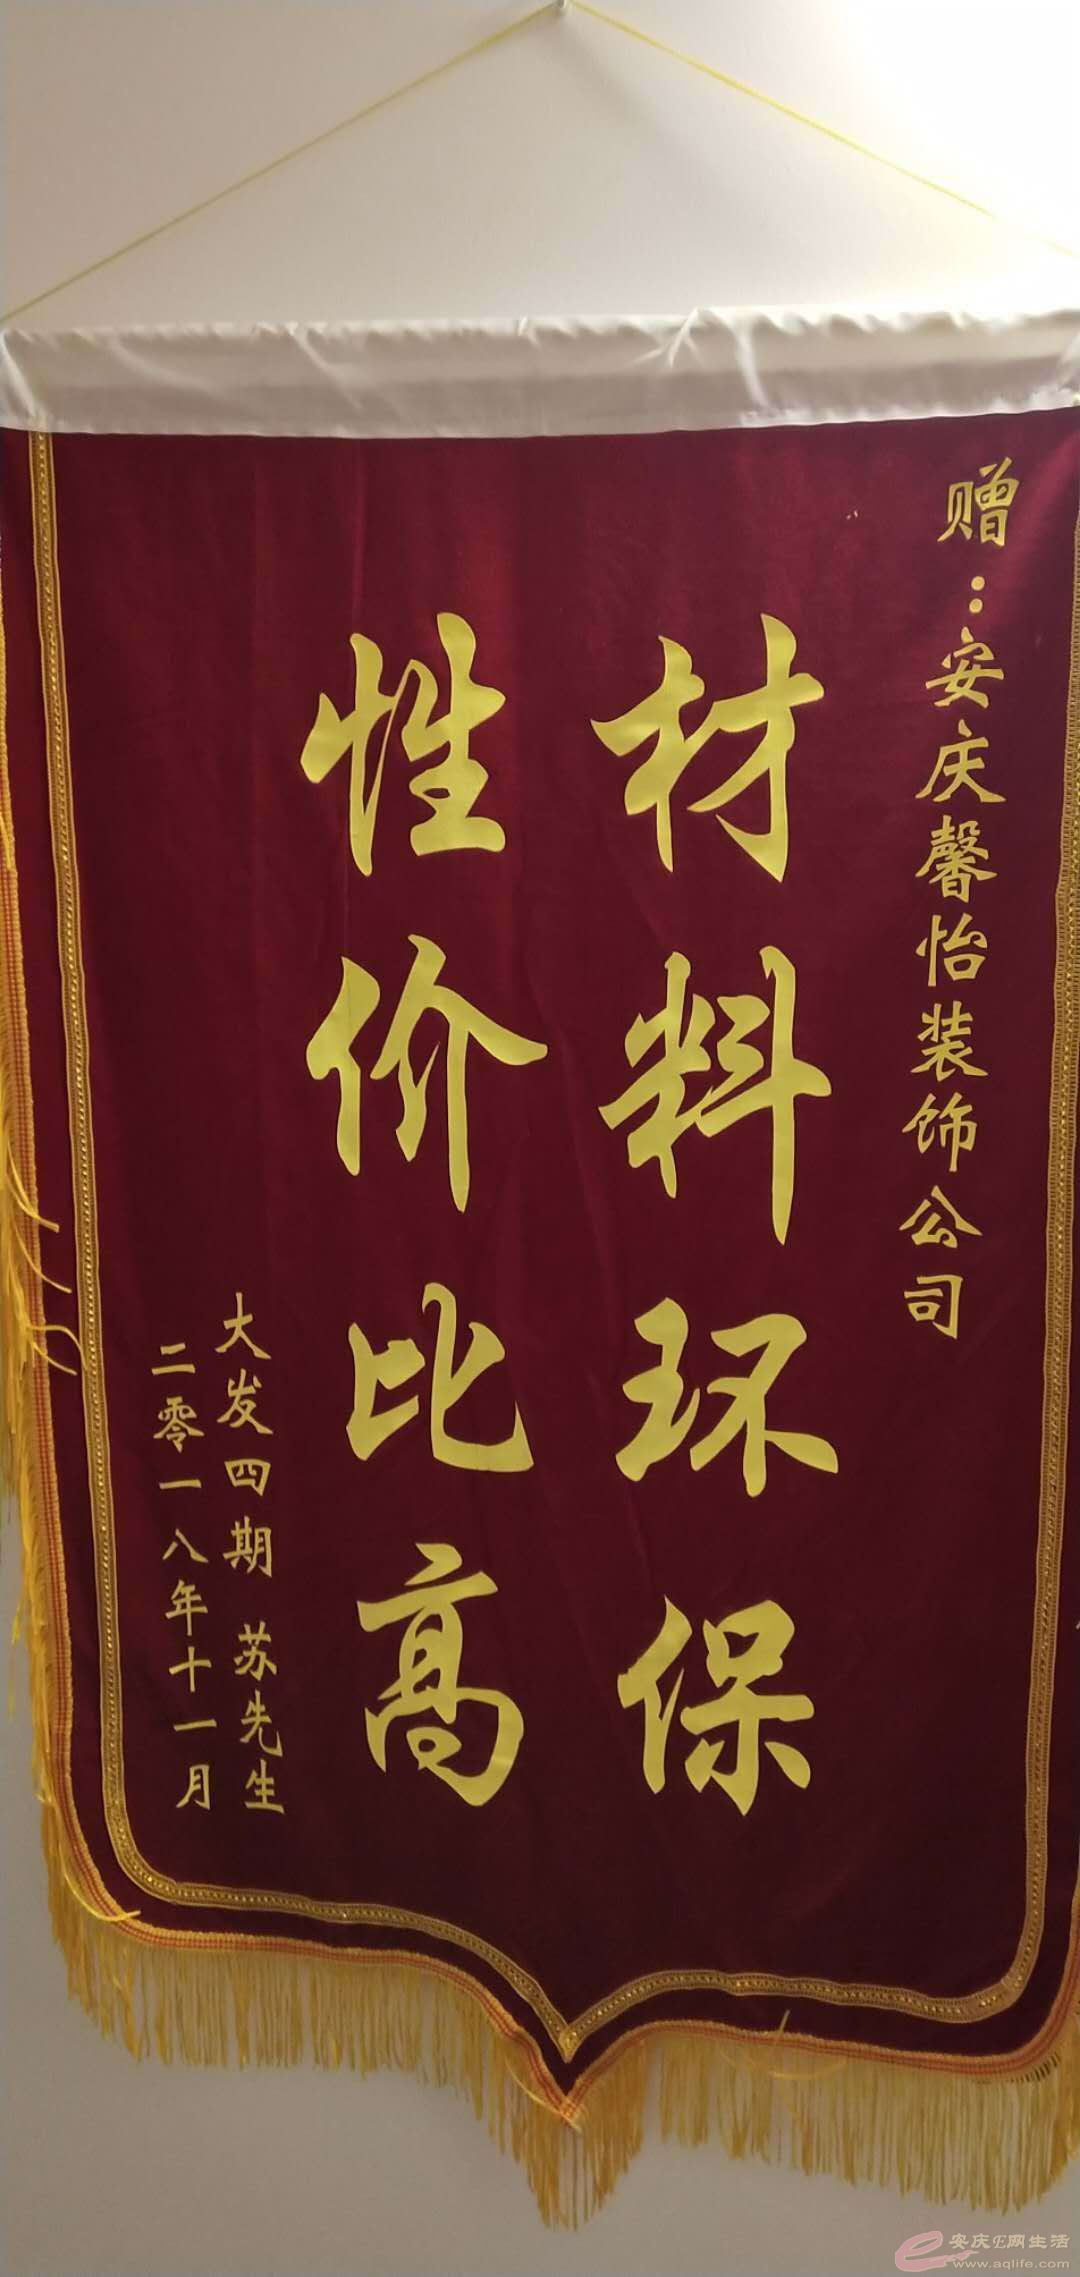 赠：安庆馨怡装饰公司
材料环保
性价比高
大发四期 苏先生
二零一八年十一月
安庆E网生活
www.aqlife.com